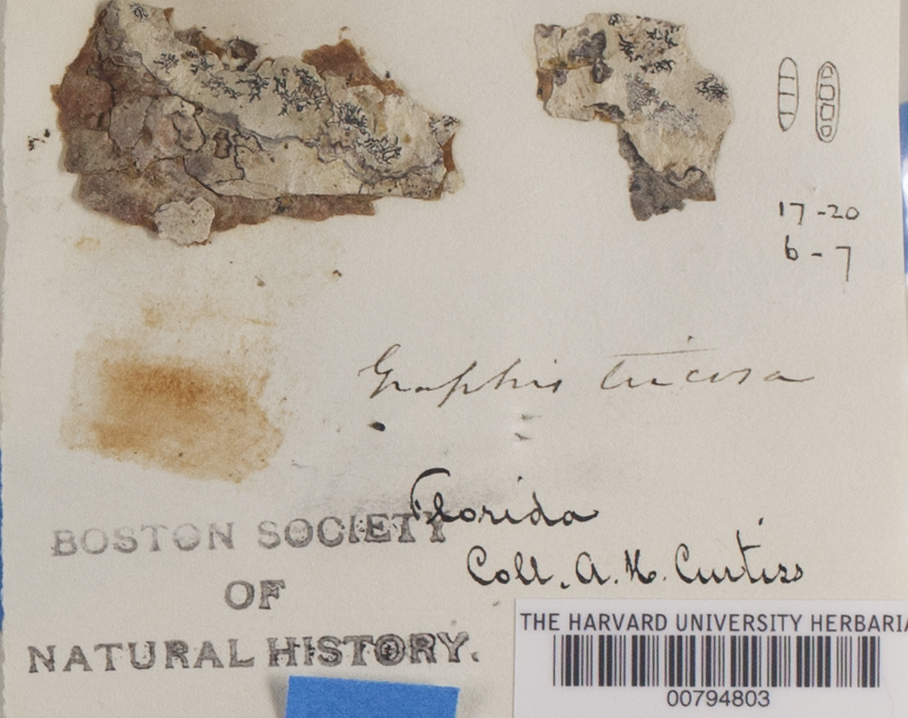 17-20
6-7
Graphis tricosa
Florida
Coll. A. H. Curtiss
BOSTON SOCIETY
OF
NATURAL HISTORY.
THE HARVARD UNIVERSITY HERBARIA
00794803